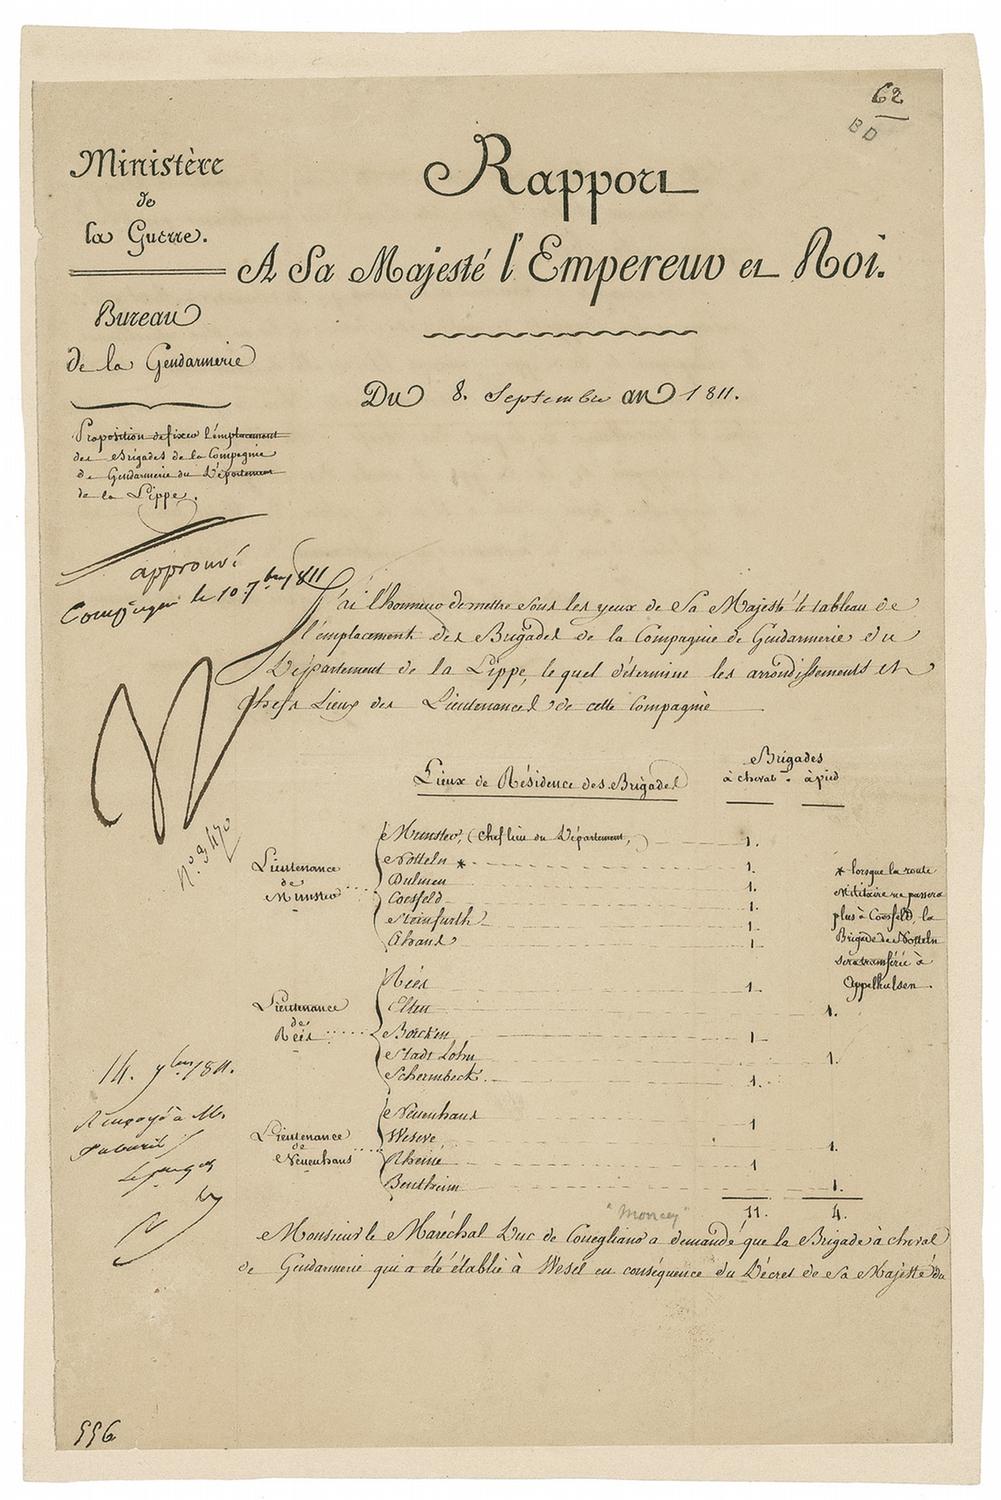 62
BD
Ministère
de
la Guerre.
Rapport
A Sa Majesté l'Empereur et Roi.
Bureau
de la Gendarmerie
Du 8. Septembre an 1811.
Proposition de fixer l'emplacement
des Brigades de la Compagnie
de Gendarmerie du Département
de la Lippe.
approuvé
Compiegne le 10 7bre 1811
J'ai l'honneur de mettre sous les yeux de Sa Majesté le tableau de
l'emplacement des Brigades de la Compagnie de Gendarmerie du
Département de la Lippe, lequel détermine les arrondissements et
chefs Lieux des Lieutenances de cette Compagnie
N
No. 3470
Lieux de Résidence des Brigades
Brigades
à cheval à pied
Lieutenance
de
Munster
Munster, (Chef lieu du Département,) 1.
Notteln * 1.
Dulmen 1.
Coesfeld 1.
Steinfurth 1.
Ahaus 1.
* lorsque la route
Militaire ne passera
plus à Coesfeld, la
Brigade de Notteln
sera transférée à
Appelhulsen.
Lieutenance
de
Réés
Réés 1.
Elten 1.
Borcken 1
Stadt Lohn 1.
Schermbeck. 1.
14. 7bre 1811.
Renvoyé à Mr.
Lieutenance
de
Neuenhaus
Neuenhaus 1
Weseve 1.
Rheine 1
Bentheim 1.
11. 4.
"Moncey"
Monsieur le Maréchal Duc de Conegliano a demandé que la Brigade à cheval
de Gendarmerie qui a été établie à Wesel en conséquence du Décret de Sa Majesté du
556